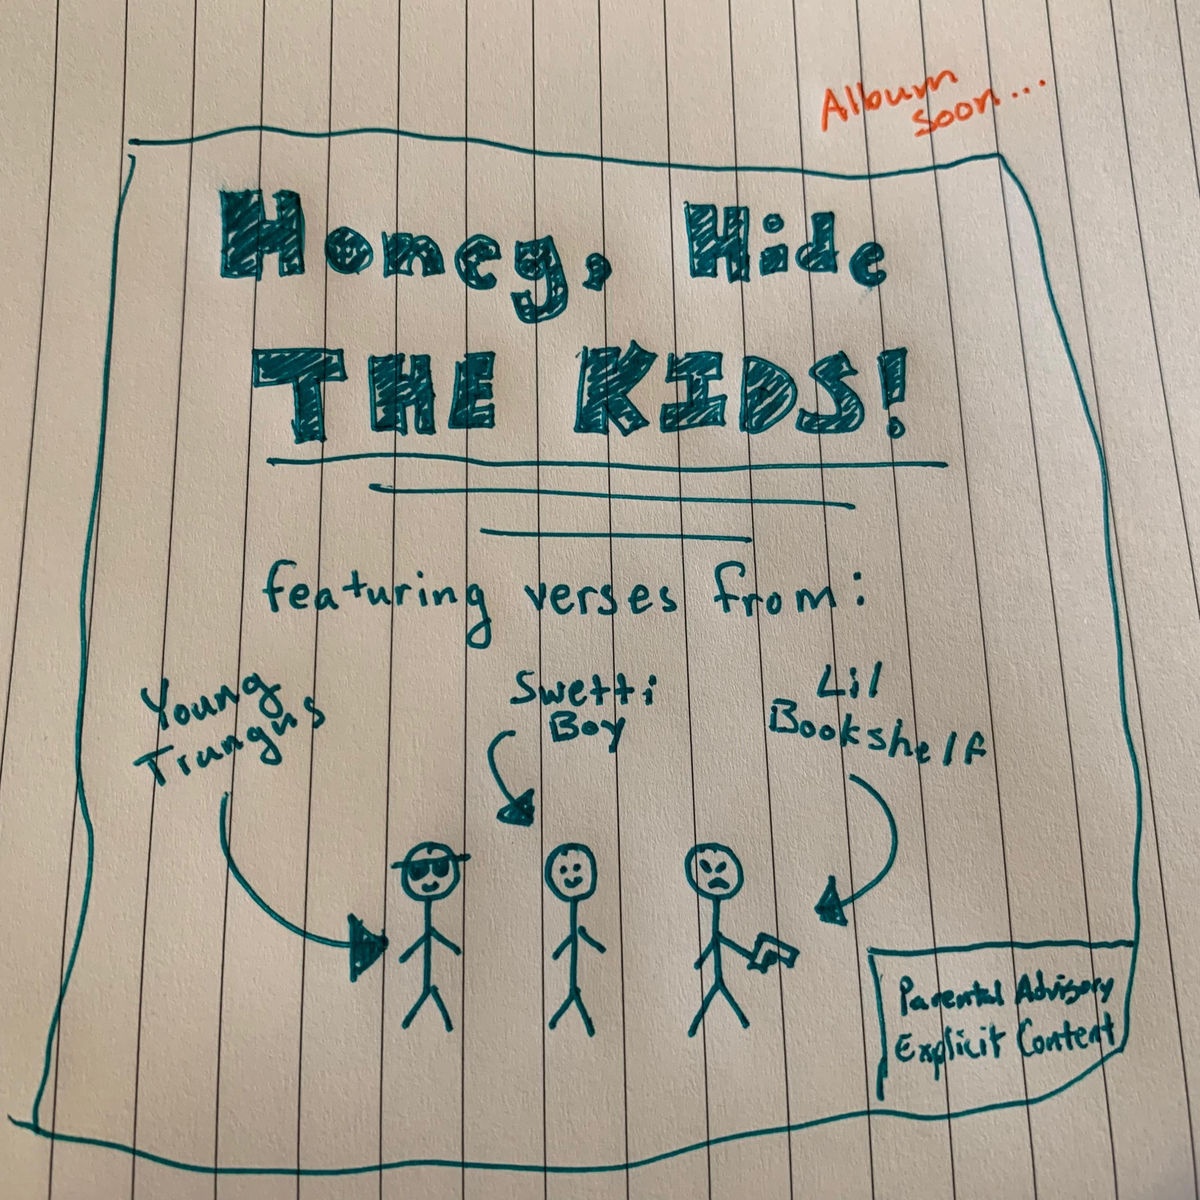 Album
soon...
Honey, Hide
THE KIDS!
featuring verses from:
Young
Trungus
Swetti
Boy
Lil
Bookshelf
Parental Advisory
Explicit Content